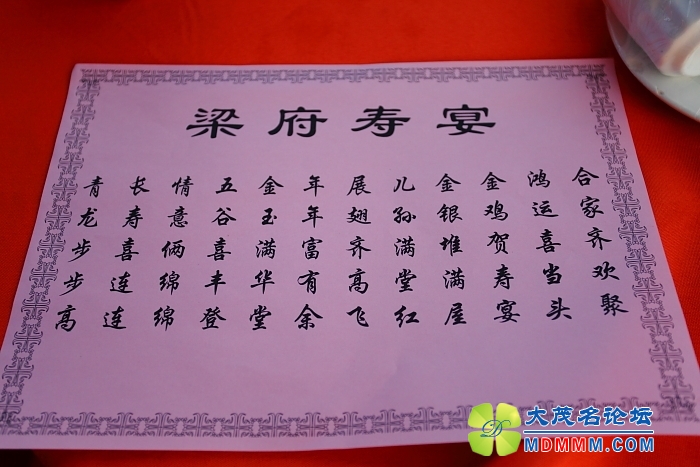 梁府寿宴
合家齐欢聚
鸿运喜当头
金鸡贺寿宴
金银堆满屋
儿孙满堂红
展翅齐高飞
年年富有余
金玉满华堂
五谷喜丰登
情意俩绵绵
长寿喜连连
青龙步步高
大茂名论坛
MDMMM.COM